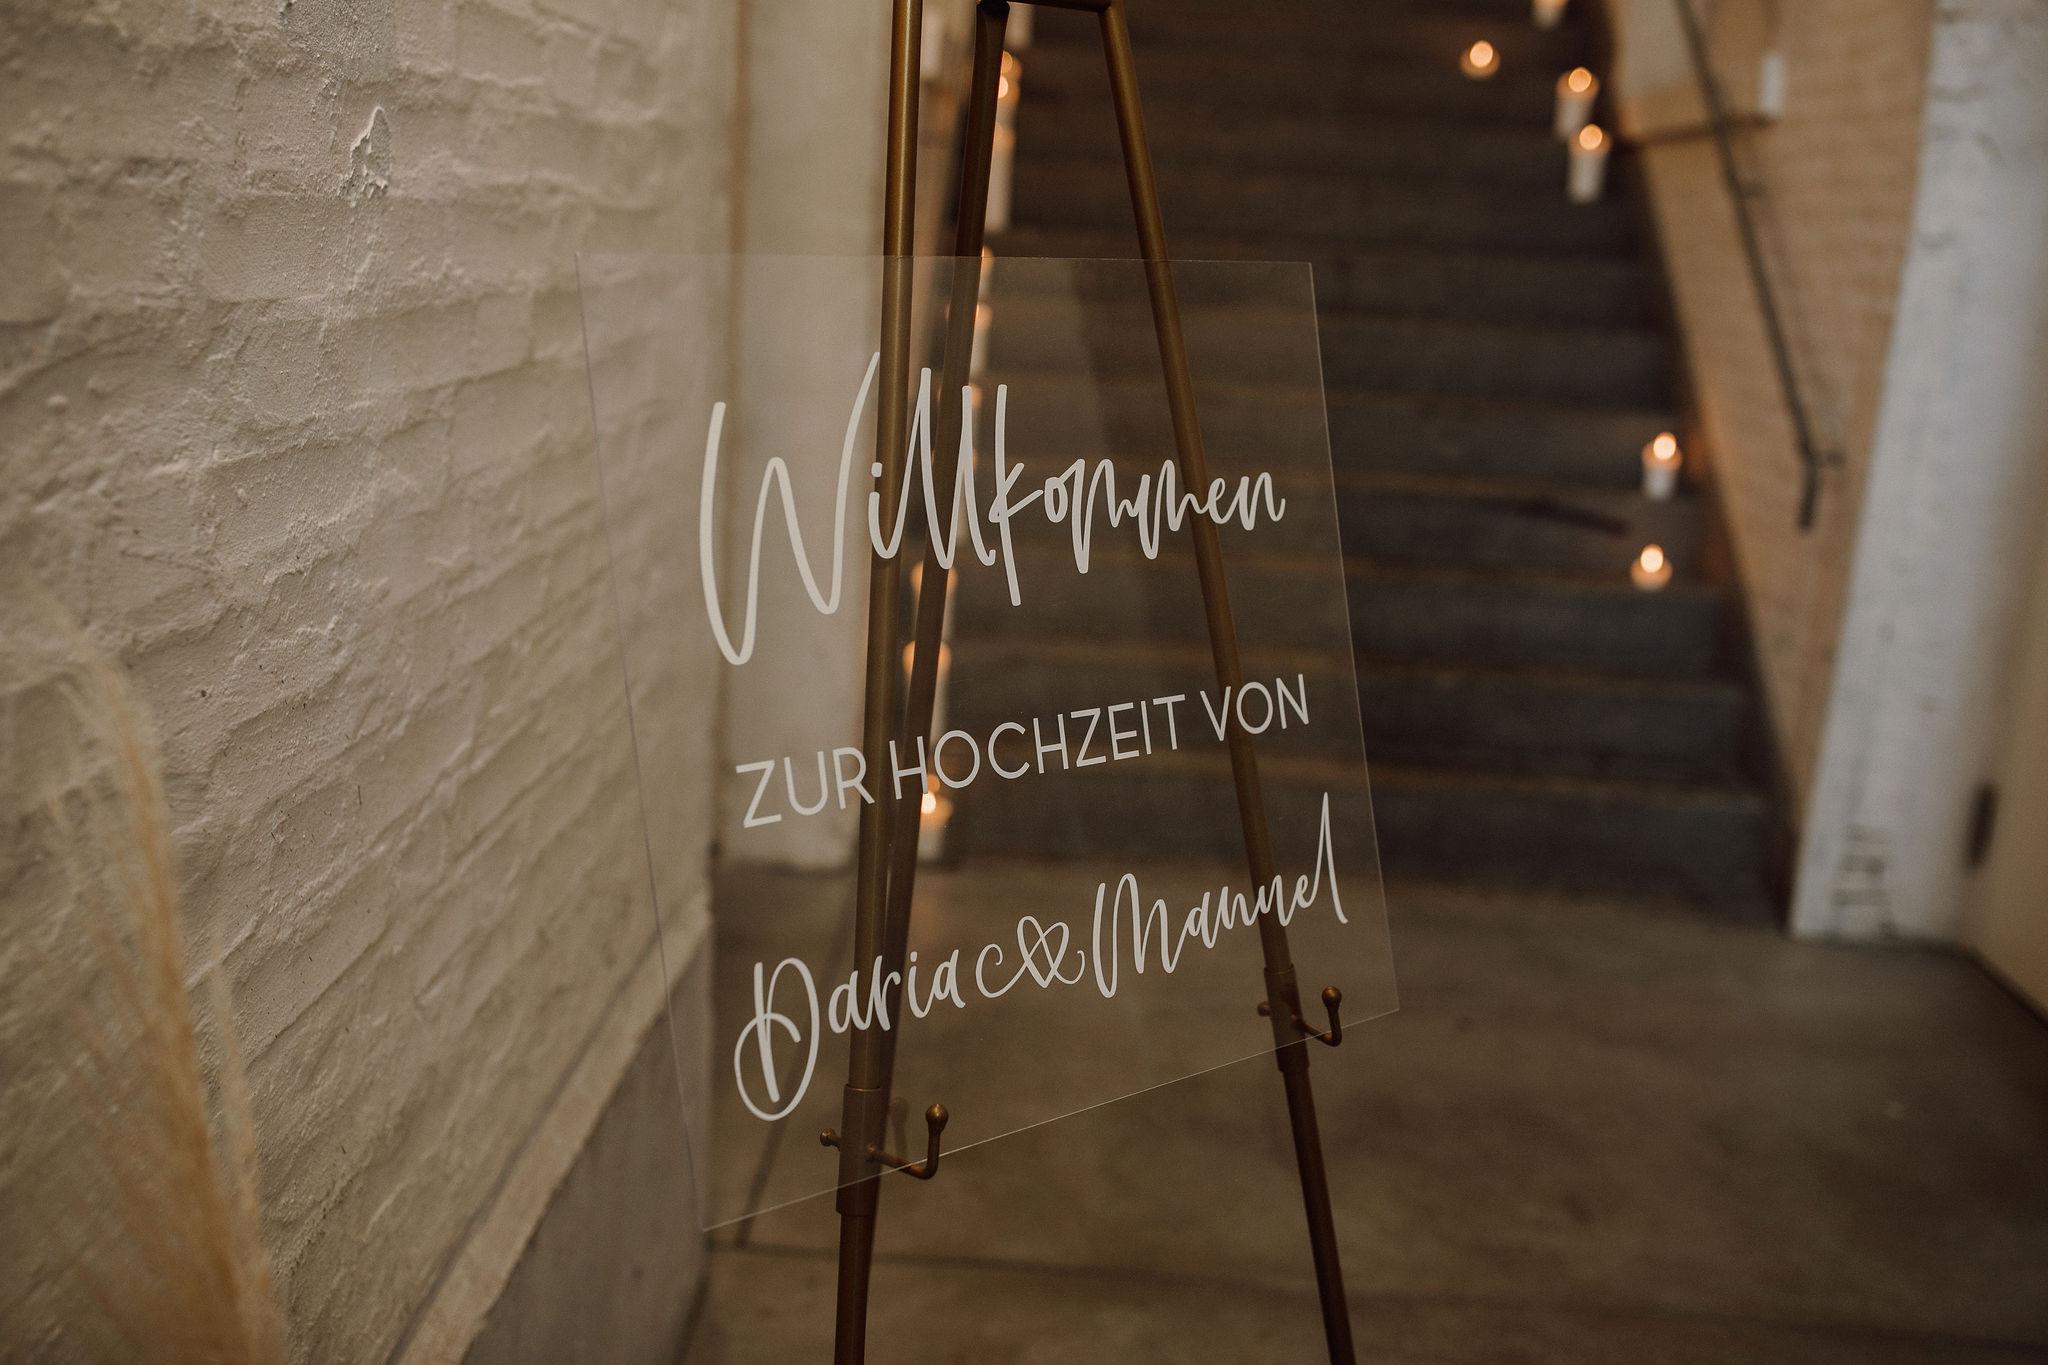 Willkommen
ZUR HOCHZEIT VON
Daria & Manuel